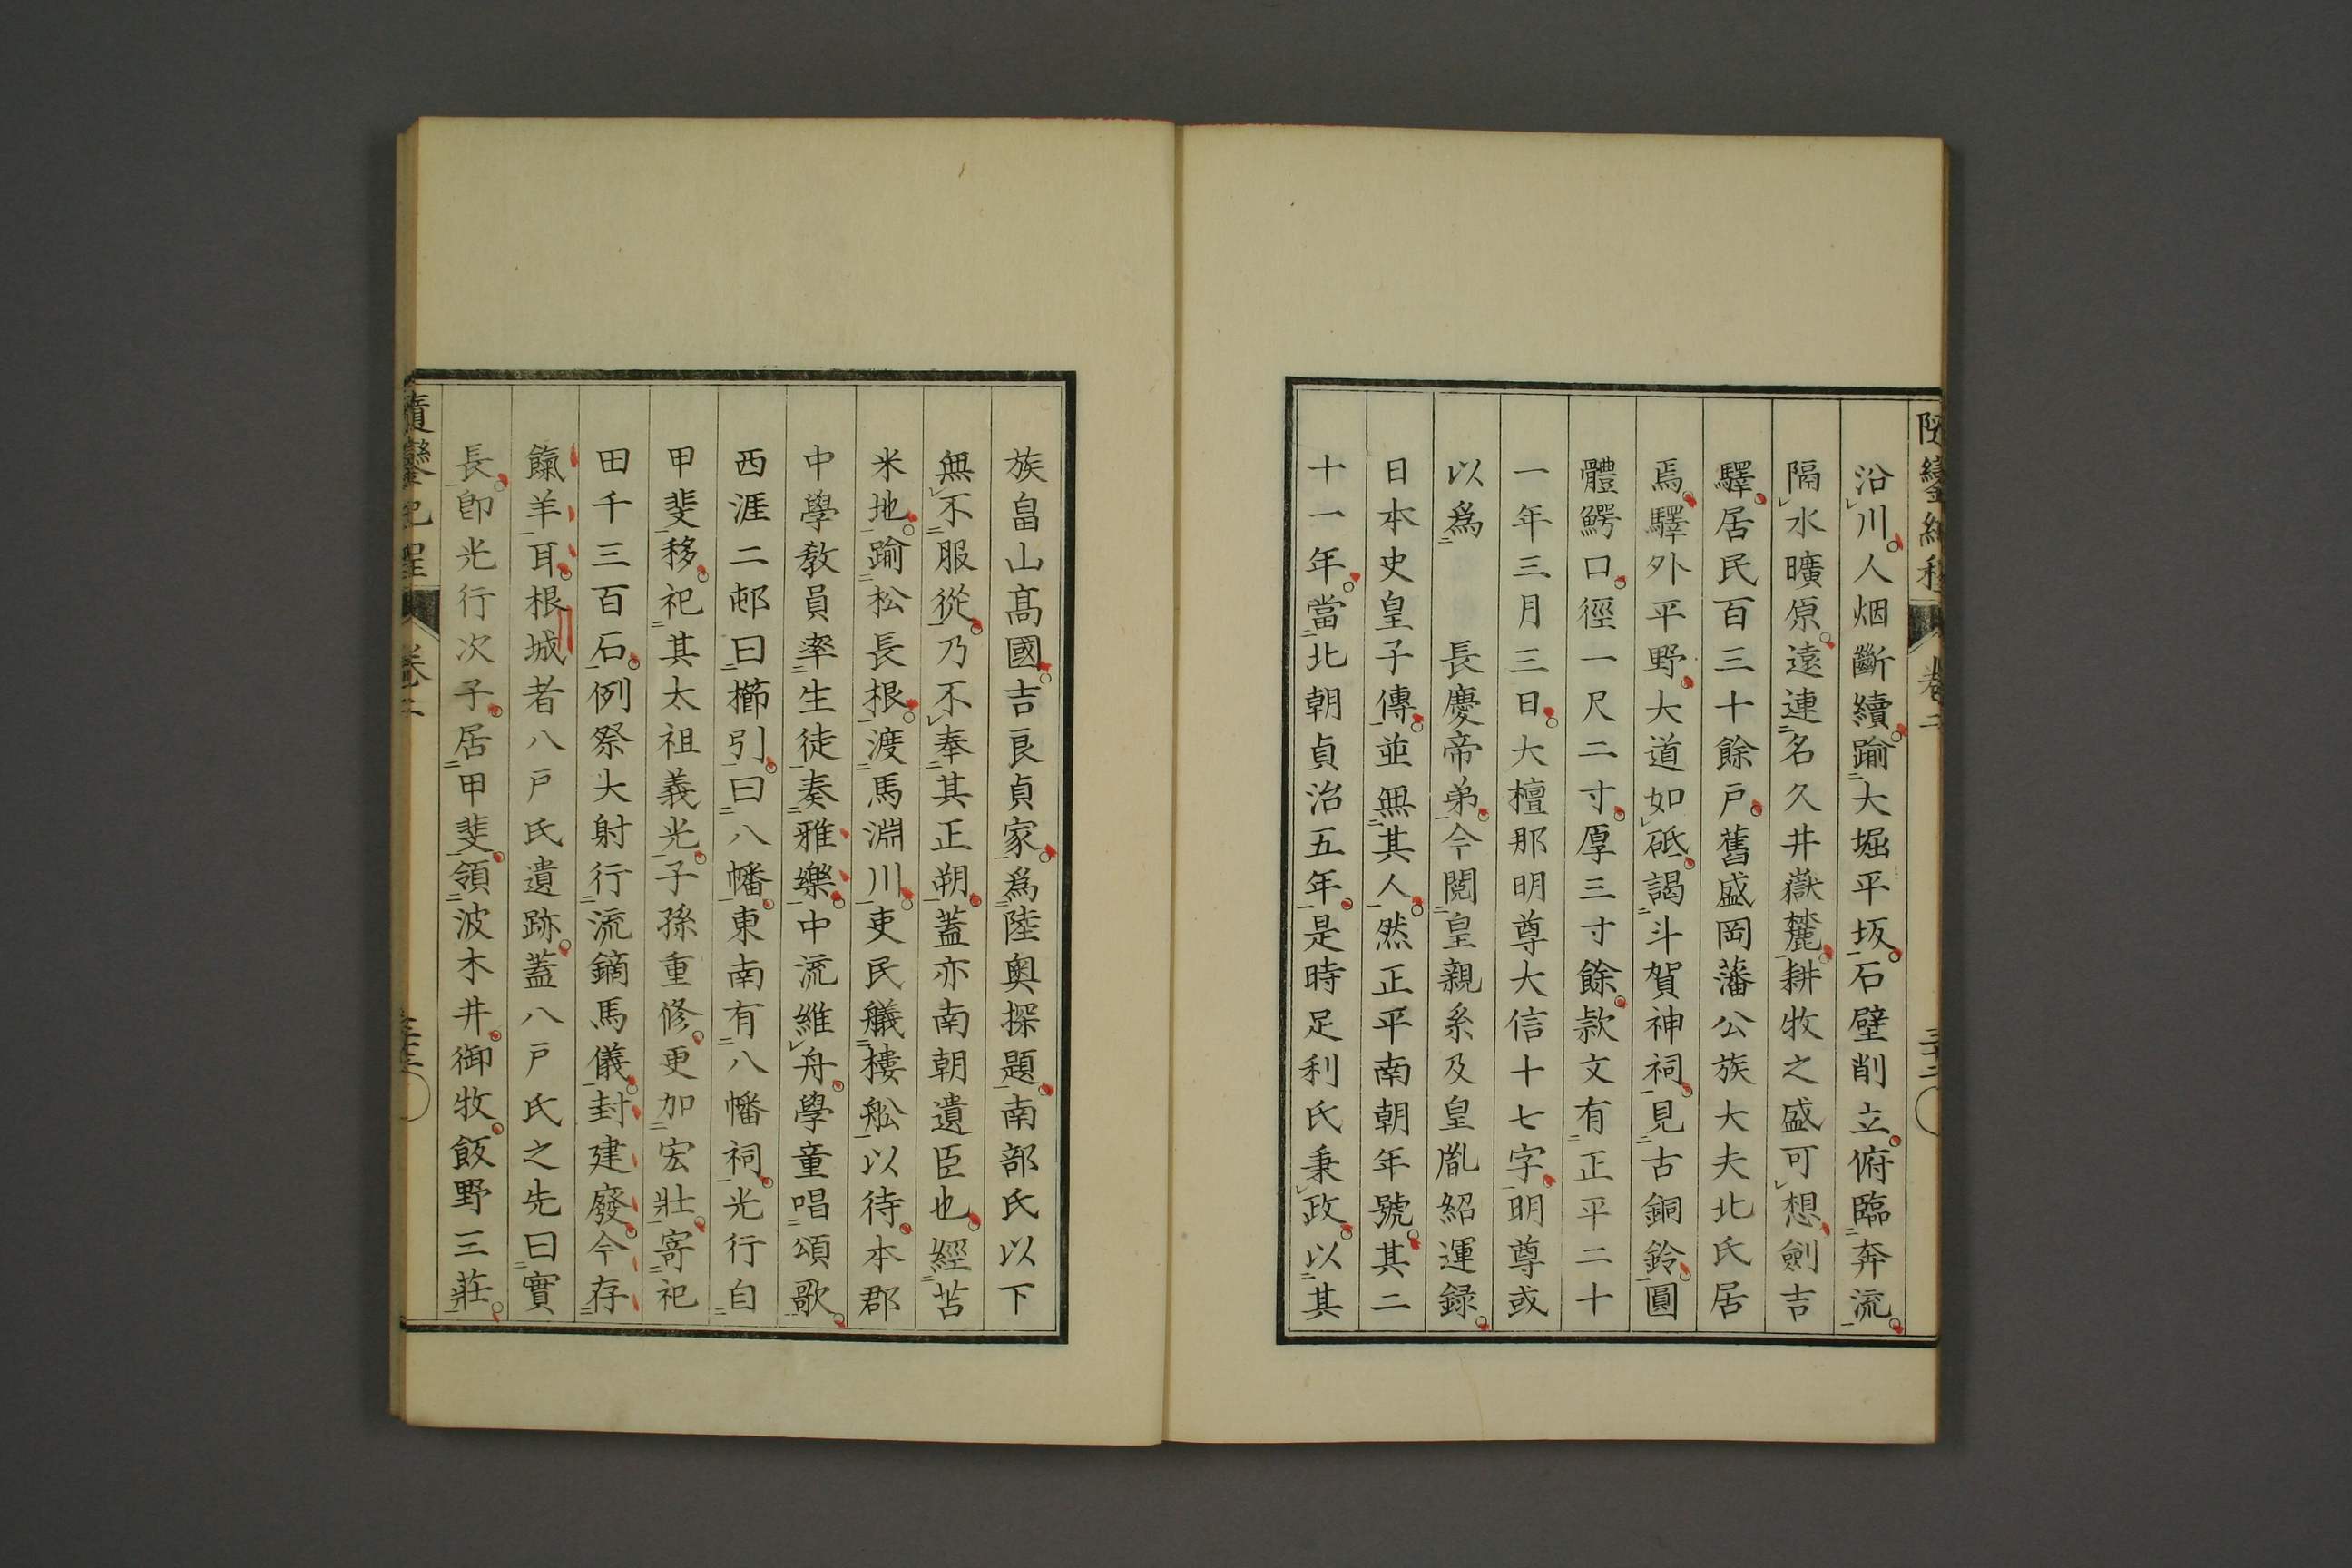 沿川人烟斷續踰大堀平坂石壁削立俯臨奔流
隔水曠原遠連名久井嶽麓耕牧之盛可想劍吉
驛居民百三十餘戸舊盛岡藩公族大夫北氏居
焉驛外平野大道如砥謁斗賀神祠見古銅鈴圓
體鰐口徑一尺二寸厚三寸餘款文有正平二十
一年三月三日大檀那明尊大信十七字明尊或
以爲　長慶帝弟今閲皇親系及皇胤紹運録
日本史皇子傳並無其人然正平南朝年號其二
十一年當北朝貞治五年是時足利氏秉政以其
族畠山高國吉良貞家爲陸奧探題南部氏以下
無不服從乃不奉其正朔蓋亦南朝遺臣也經苫
米地踰松長根渡馬淵川吏民艤樓舩以待本郡
中學教員率生徒奏雅樂中流維舟學童唱頌歌
西涯二邨曰櫛引曰八幡東南有八幡祠光行自
甲斐移祀其太祖義光子孫重修更加宏壯寄祀
田千三百石例祭大射行流鏑馬儀封建廢今存
餼羊耳根城者八戸氏遺跡蓋八戸氏之先曰實
長卽光行次子居甲斐領波木井御牧飯野三莊
隨鑾紀程　卷二